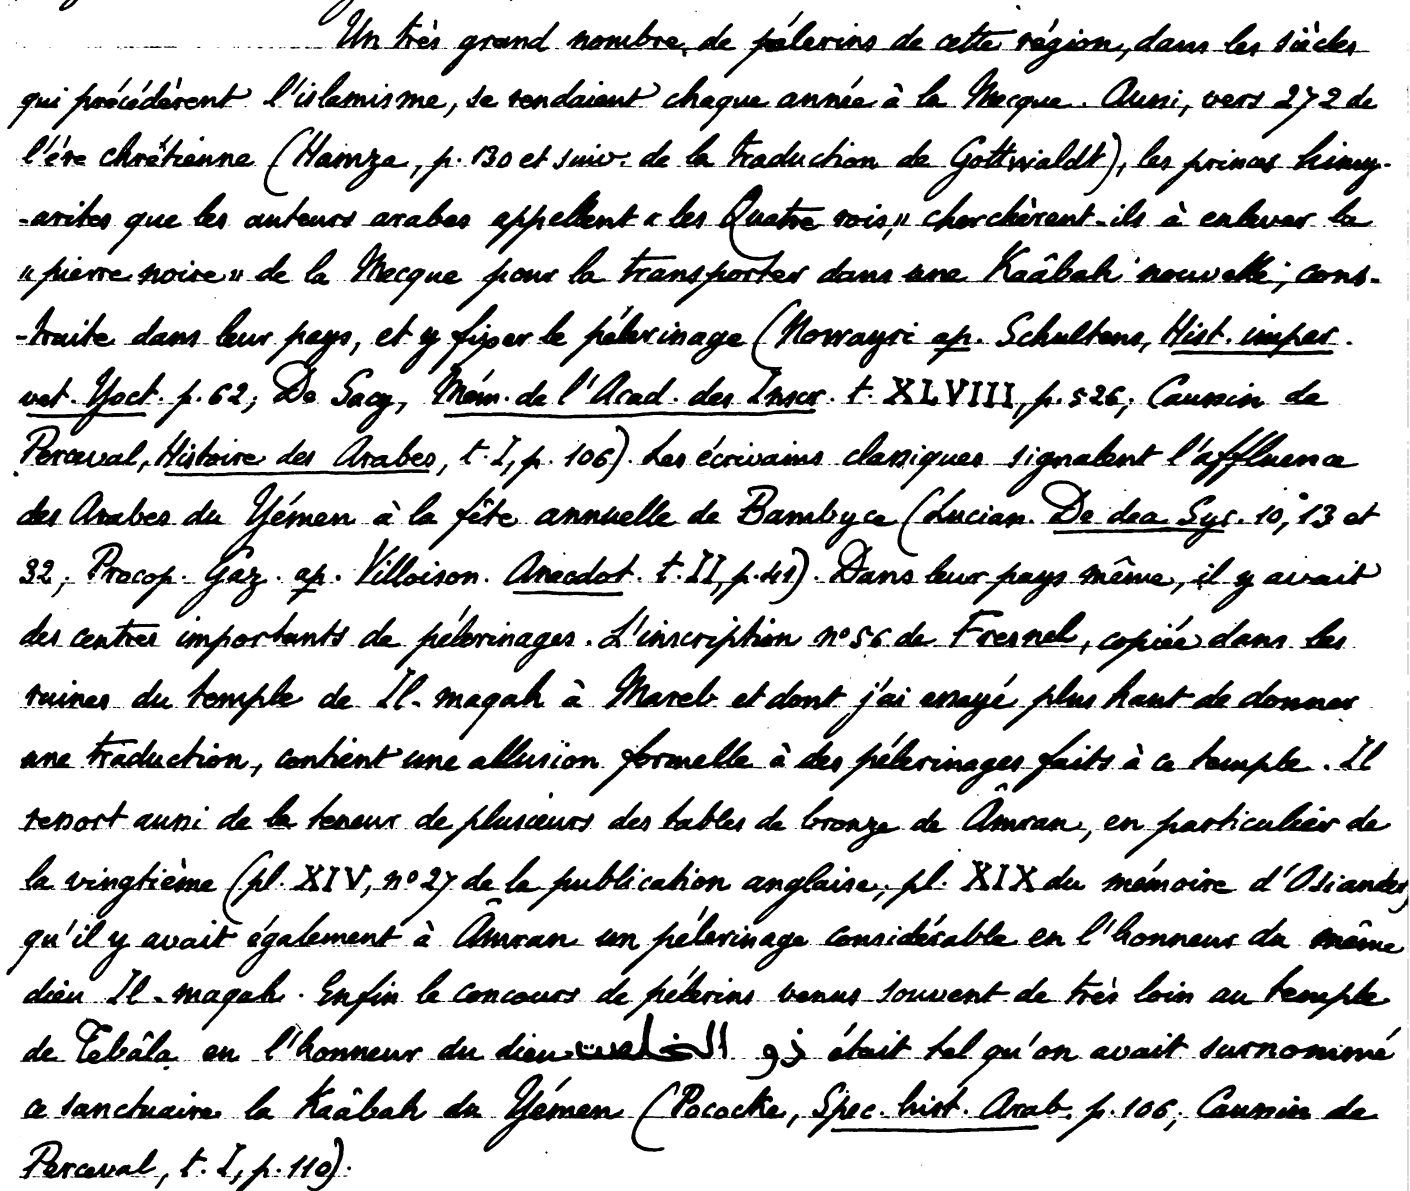 Un très grand nombre de pélerins de cette région, dans les siècles
qui précédèrent l'islamisme, se rendaient chaque année à la Mecque. Aussi, vers 272 de
l'ére chrétienne (Hamza, p. 130 et suiv. de la traduction de Gottwaldt), les princes himy-
-arites que les auteurs arabes appellent « les Quatre rois, » cherchèrent-ils à enlever la
« pierre noire » de la Mecque pour la transporter dans une Kaâbah nouvelle, cons-
-truite dans leur pays, et y fixer le pélerinage (Nowayri ap. Schultens, Hist. imper.
vet. Yoct. p. 62; De Sacy, Mém. de l'Acad. des Inscr. t. XLVIII, p. 526; Caussin de
Perceval, Histoire des Arabes, t. I, p. 106). Les écrivains classiques signalent l'affluence
des Arabes du Yémen à la fête annuelle de Bambyce (Lucian. De dea Syr. 10, 13 et
32; Procop. Gaz. ap. Villoison. Anecdot. t. II, p. 41). Dans leur pays même, il y avait
des centres importants de pélerinages. L'inscription nº 56 de Fresnel, copiée dans les
ruines du temple de Il-maqah à Mareb et dont j'ai essayé plus haut de donner
une traduction, contient une allusion formelle à des pélerinages faits à ce temple. Il
ressort aussi de la teneur de plusieurs des tables de bronze de Âmran, en particulier de
la vingtième (pl. XIV, nº 27 de la publication anglaise, pl. XIX du mémoire d'Osiander)
qu'il y avait également à Âmran un pélerinage considérable en l'honneur du même
dieu Il-maqah. Enfin le concours de pélerins venus souvent de très loin au temple
de Tebâla en l'honneur du dieu ذو الخلصت était tel qu'on avait surnommé
ce sanctuaire la Kaâbah du Yémen (Pococke, Spec. hist. Arab. p. 106; Caussin de
Perceval, t. I, p. 110).